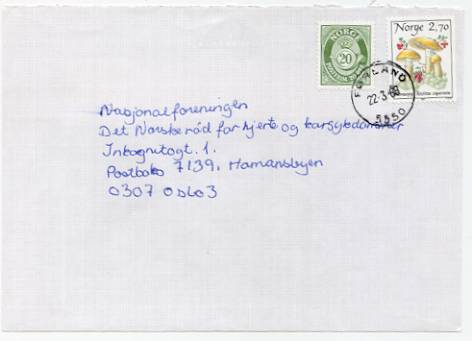 NORGE
20
POSTFRIM
Norge 2,70
FØRLAND
22-3-88
5550
Nasjonalforeningen
Det Norske råd for hjerte og karsykdommer
Inkognitogt. 1.
Postboks 7139, Homansbyen
0307 Oslo 3